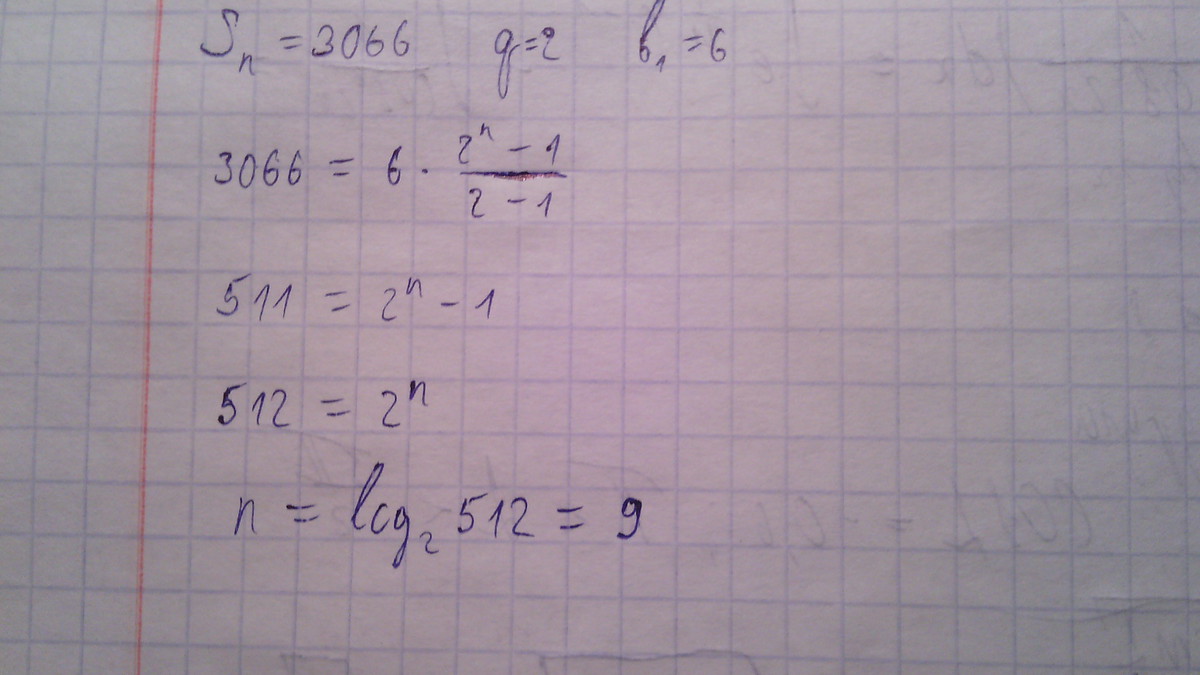 Sₙ = 3066 q=2 b₁ = 6
3066 = 6 · (2ⁿ - 1)/(2 - 1)
511 = 2ⁿ - 1
512 = 2ⁿ
n = log₂ 512 = 9